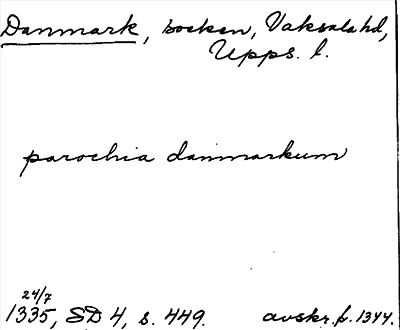 Danmark, socken, Vaksala hd,
Upps. l.
parochia danmarkum
24/7
1335, SD 4, s. 449. avskr. fr. 1344.